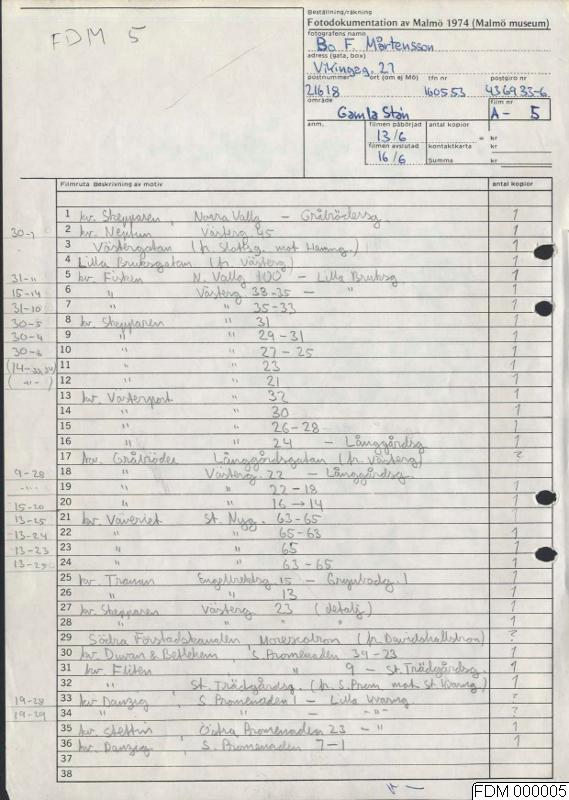 FDM 5
Beställning/räkning
Fotodokumentation av Malmö 1974 (Malmö museum)
fotografens namn
Bo F. Mårtensson
adress (gata, box)
Vikingag. 27
postnummer ort (om ej Mö) tfn nr postgiro nr
21618 160553 436933-6
område film nr
Gamla Stan A- 5
anm. filmen påbörjad antal kopior
13/6 = kr
filmen avslutad kontaktkarta kr
16/6 Summa kr
Filmruta Beskrivning av motiv antal kopior
1 kv. Skepparen, Norra Vallg – Gråbrödersg. 1
30-7 2 kv. Neptun Västerg. 45 1
3 Västergatan (fr. Slottsg. mot Hamng.) 1
4 Lilla Bruksgatan (fr. Västerg) 1
31-11 5 kv. Fisken N. Vallg 100 – Lilla Bruksg 1
15-14 6 " Västerg 33-35 – " 1
31-10 7 " " 35-33 1
30-5 8 kv. Skepparen " 31 1
30-4 9 " " 29-31 1
30-3 10 " " 27-25 1
11 " " 23 1
( -"- ) 12 " " 21 1
13 kv. Västerport " 32 1
14 " " 30 1
15 " " 26-28 1
16 " " 24 – Långgårdsg 1
17 kv. Gråbröder Långgårdsgatan (fr. Västerg) ?
9-28 18 " Västerg. 22 – Långgårdsg. 1
-"- 19 " " 22-18 1
15-20 20 " " 16→14 1
13-25 21 kv. Väveriet St. Nyg. 63-65 1
13-24 22 " " 65-63 1
13-23 23 " " 65 1
13-25 24 " " 63-65 1
25 kv. Tranan Engelbrektsg. 15 – Grynbodg. 1 1
26 " " 13 1
27 kv. Skepparen Västerg. 23 (detalj) 1
28 " " " " 1
29 Södra Förstadskanalen, (fr. Davidshallsbron) ?
30 kv. Duvan & Betlehem, S. Promenaden 39-23 1
31 kv. Fliten " 9 – St. Trädgårdsg. 1
32 " St. Trädgårdsg. (fr. S. Prom. mot St. Kvarng) 1
19-28 33 kv Danzig S Promenaden 1 – Lilla Kvarng ?
19-29 34 " " – -"- ?
35 kv. Stettin Östra Promenaden 23 – " 1
36 kv. Danzig S. Promenaden 7-1 1
37
38
FDM 000005